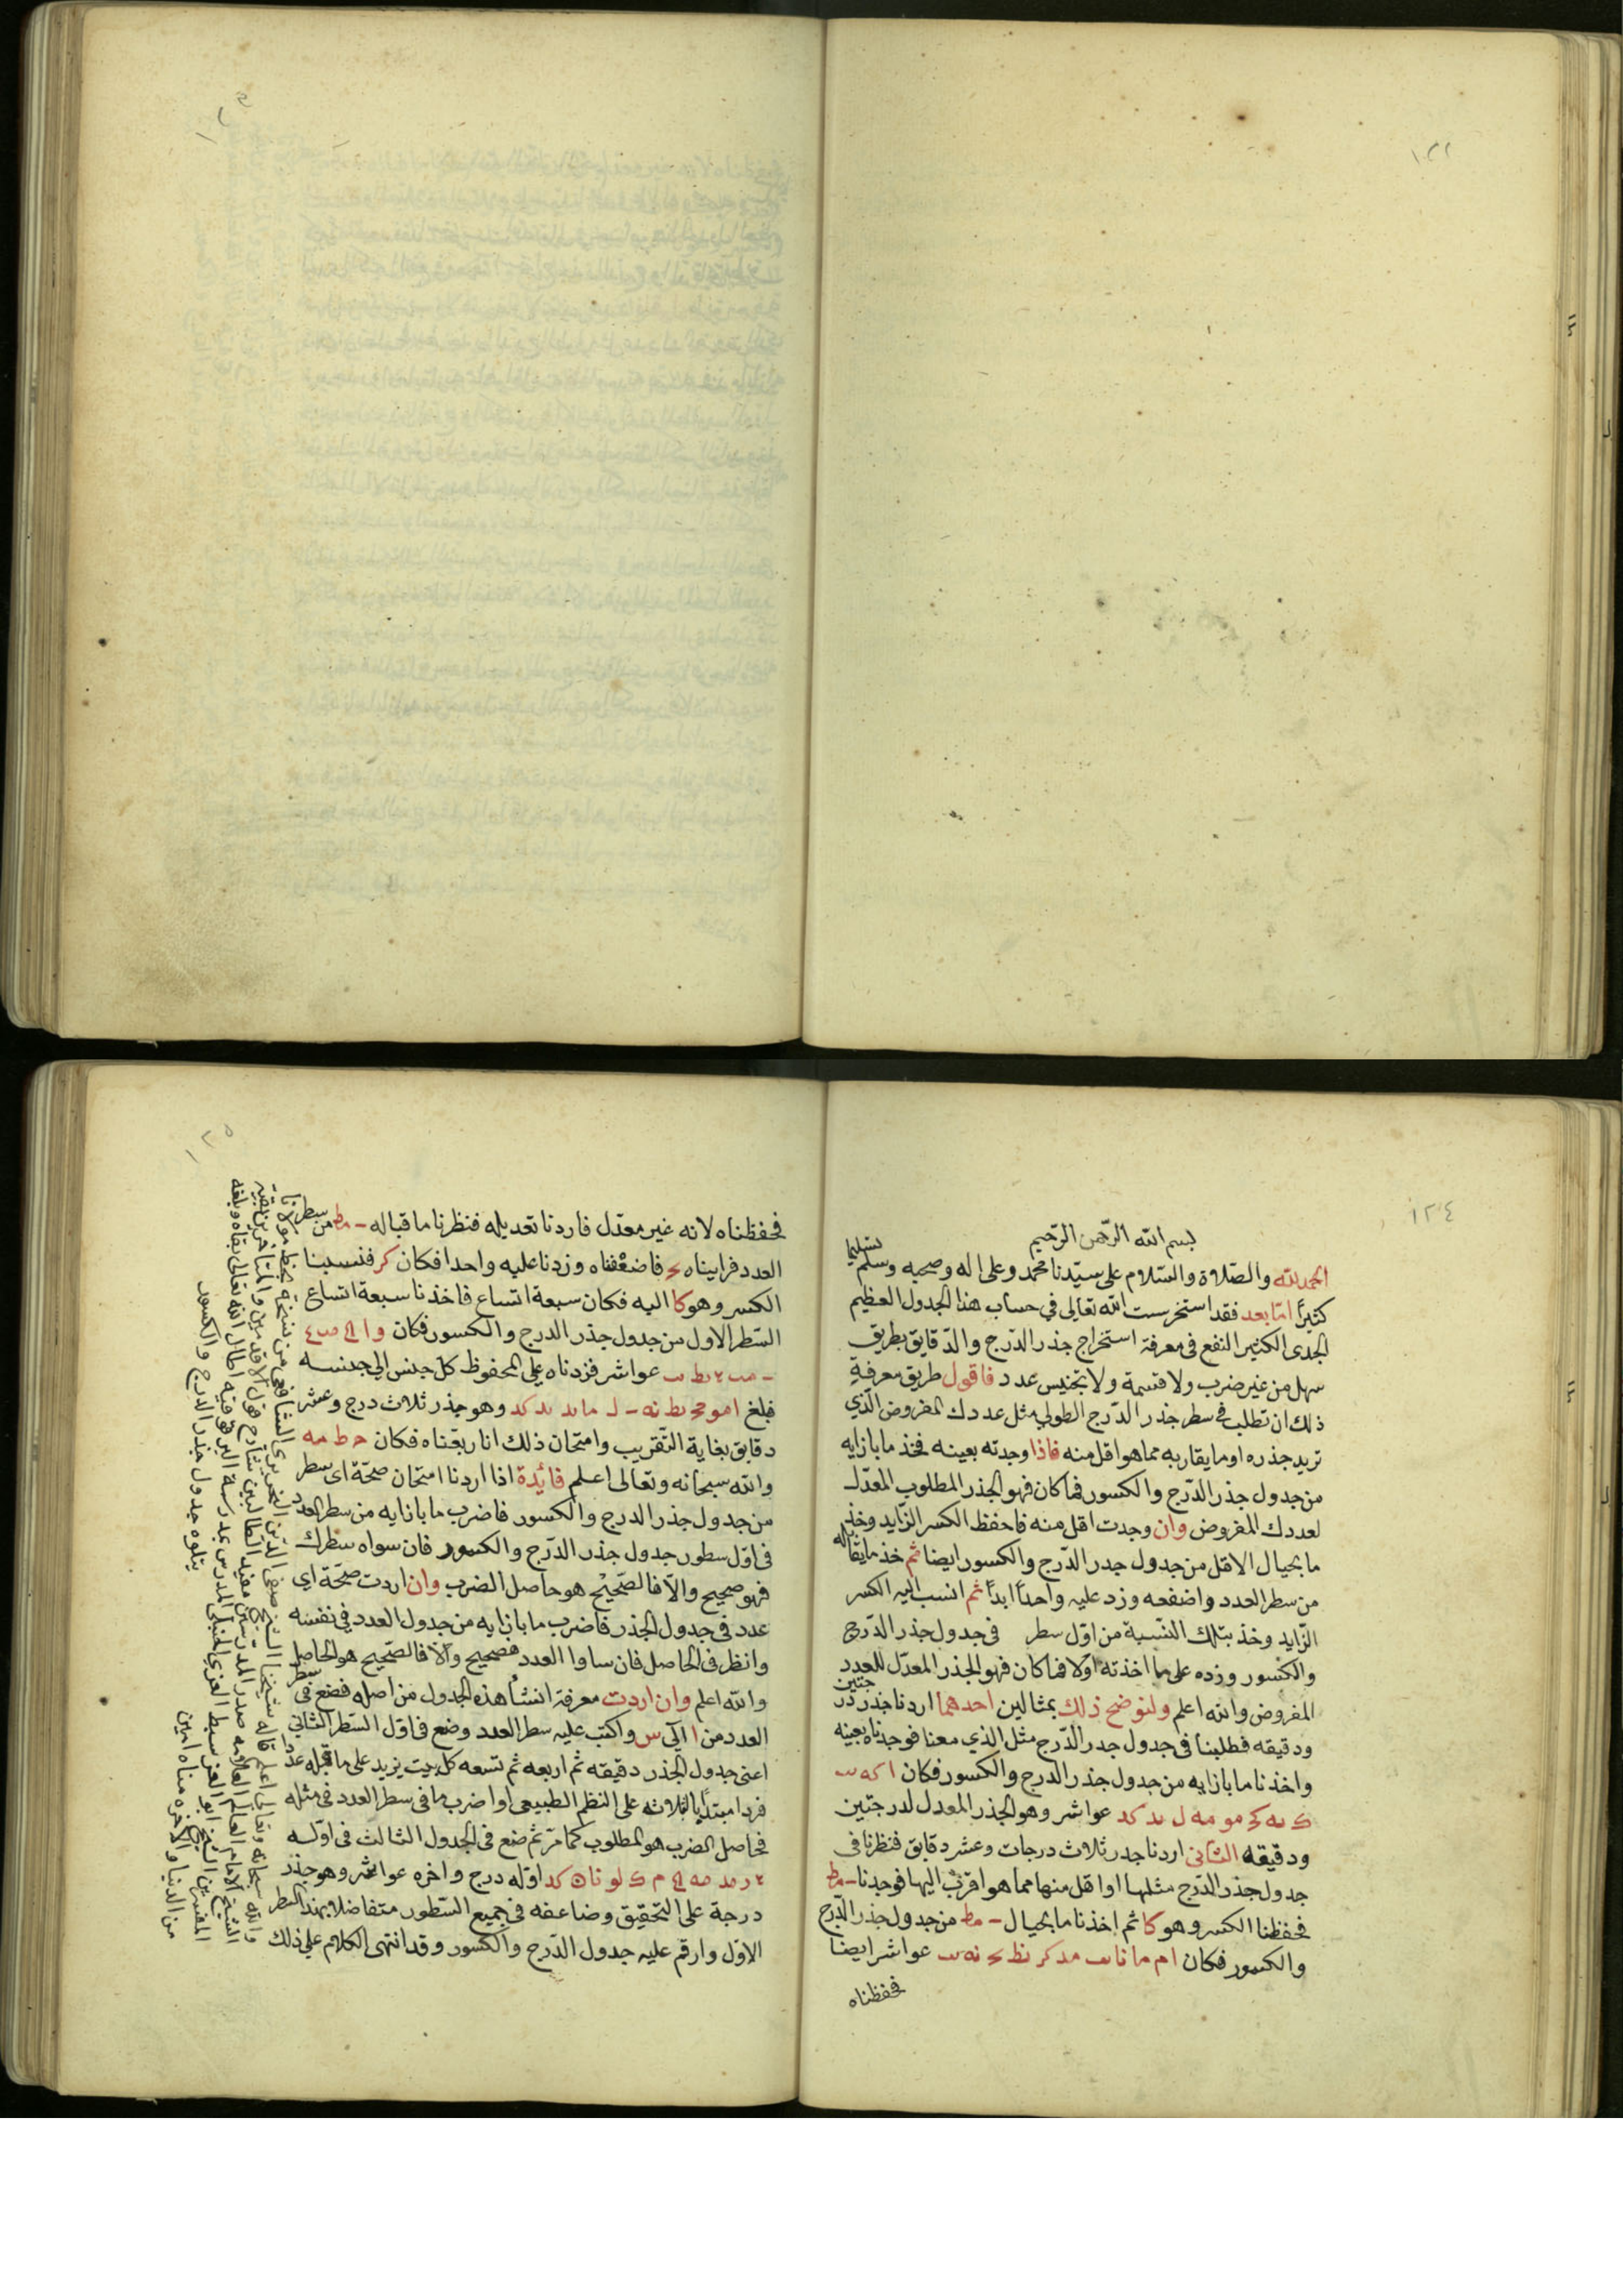 ١٢٢
١٢٣
١٢٤
بسم الله الرحمن الرحيم
الحمد لله والصلاة والسلام على سيدنا محمد وعلى اله وصحبه وسلم تسليما
كثيرا اما بعد فقد استخرست الله تعالى في حساب هذا الجدول العظيم
الجدى الكثير النفع في معرفة استخراج جذر الدرج والدقايق بطريق
سهل من غير ضرب ولا قسمة ولا تجنيس عدد فاقول طريق معرفة
ذلك ان تطلب في سطر جذر الدرج الطولي مثل عددك المفروض الذي
تريد جذره او ما يقاربه مما هو اقل منه فاذا وجدته بعينه فخذ ما بازايه
من جدول جذر الدرج والكسور فما كان فهو الجذر المطلوب المعدل
لعددك المفروض وان وجدت اقل منه فاحفظ الكسر الزايد وخذ
ما بحيال الاقل من جدول جدر الدرج والكسور ايضا ثم خذ ما يقابله
من سطر العدد واضعفه وزد عليه واحدا ابدا ثم انسب اليه الكسر
الزايد وخذ بتلك النسبة من اول سطر في جدول جذر الدرج
والكسور وزده على ما اخذته اولا فما كان فهو الجذر المعدل للعدد
المفروض والله اعلم ولنوضح ذلك بمثالين احدهما اردنا جذر درجتين
ودقيقه فطلبنا في جدول جدر الدرج مثل الذي معنا فوجدناه بعينه
واخذنا ما بازايه من جدول جذر الدرج والكسور فكان ا كه
عواشر وهو الجذر المعدل لدرجتين
ودقيقه الثاني اردنا جدر ثلاث درجات وعشر دقايق فنظرنا في
جدول جذر الدرج مثلها او اقل منها مما هو اقرب اليها فوجدنا
فحفظنا الكسر وهو كا ثم اخذنا ما بحيال من جدول جذر الدرج
والكسور فكان عواشر ايضا
فحفظناه
١٢٥
فحفظناه لانه غير معدل فاردنا تعديله فنظرنا ما قباله من سطر
العدد فرايناه فاضعفناه وزدنا عليه واحدا فكان كز فنسبنا
الكسر وهو كا اليه فكان سبعة اتساع فاخذنا سبعة اتساع
السطر الاول من جدول جذر الدرج والكسور فكان
عواشر فزدناه على المحفوظ كل جنس الى جنسه
فبلغ وهو جذر ثلاث درج وعشر
دقايق بغاية التقريب وامتحان ذلك انا ربعناه فكان ح ط مه
والله سبحانه وتعالى اعلم فائدة اذا اردنا امتحان صحة اى سطر
من جدول جذر الدرج والكسور فاضرب ما بازايه من سطر العدد
في اول سطور جدول جذر الدرج والكسور فان سواه سطرك
فهو صحيح والا فالصحيح هو حاصل الضرب وان اردت صحة اي
عدد في جدول الجذر فاضرب ما بازايه من جدول العدد في نفسه
وانظر في الحاصل فان ساوا العدد فصحيح والا فالصحيح هو الحاصل
والله اعلم وان اردت معرفة انشأ هذه الجدول من اصله فضع في سطر
العدد من ا الى س واكتب عليه سطر العدد وضع في اول السطر الثاني
اعنى جدول الجذر دقيقه ثم اربعه ثم تسعه كل بيت يزيد على ما قبله عددا
فردا مبتدئا بالثلاثه على النظم الطبيعي او اضرب ما في سطر العدد في مثله
فحاصل الضرب هو المطلوب كما مر ثم ضع في الجدول الثالث في اوله
اوله درج واخره عواشر وهو جذر
درجة على التحقيق وضاعفه في جميع السطور متفاضلا بهذا السطر
الاول وارقم عليه جدول الدرج والكسور وقد انتهى الكلام على ذلك
والله سبحانه وتعالى اعلم قاله شيخنا الشيخ
الشيخ الامام العالم العلامه صدر المدرسين مفيد الطالبين
من الدنيا والاخره مناه امين
يتلوه جدول جذر الدرج والكسور